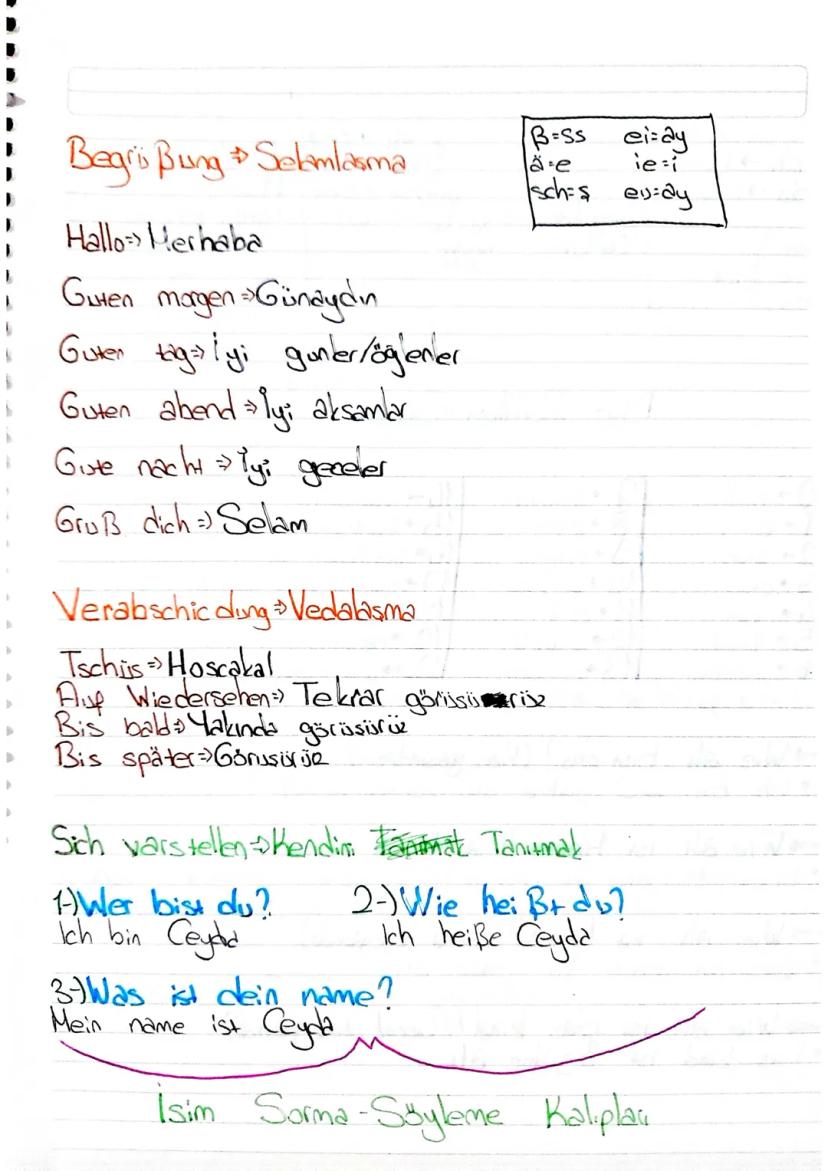 β=ss ei=ay
ä=e ie=i
sch=ş eu=ay
Begrüßung ⇒ Selamlasma
Hallo=> Merhaba
Guten morgen =>Günaydın
Guten tag=> İyi gunler/öğlenler
Guten abend => İyi aksamlar
Gute nacht => İyi geceler
Gruß dich => Selam
Verabschiedung => Vedalaşma
Tschüs => Hoscakal
Auf Wiedersehen=> Tekrar görüsürüz
Bis bald=> Yakında görüsürüz
Bis später=>Görusürüz
Sich varstellen=>Kendini Tanıtmak
1-)Wer bist du? 2-)Wie heißt du?
Ich bin Ceyda Ich heiße Ceyda
3-)Was ist dein name?
Mein name ist Ceyda
İsim Sorma-Söyleme Kalıpları